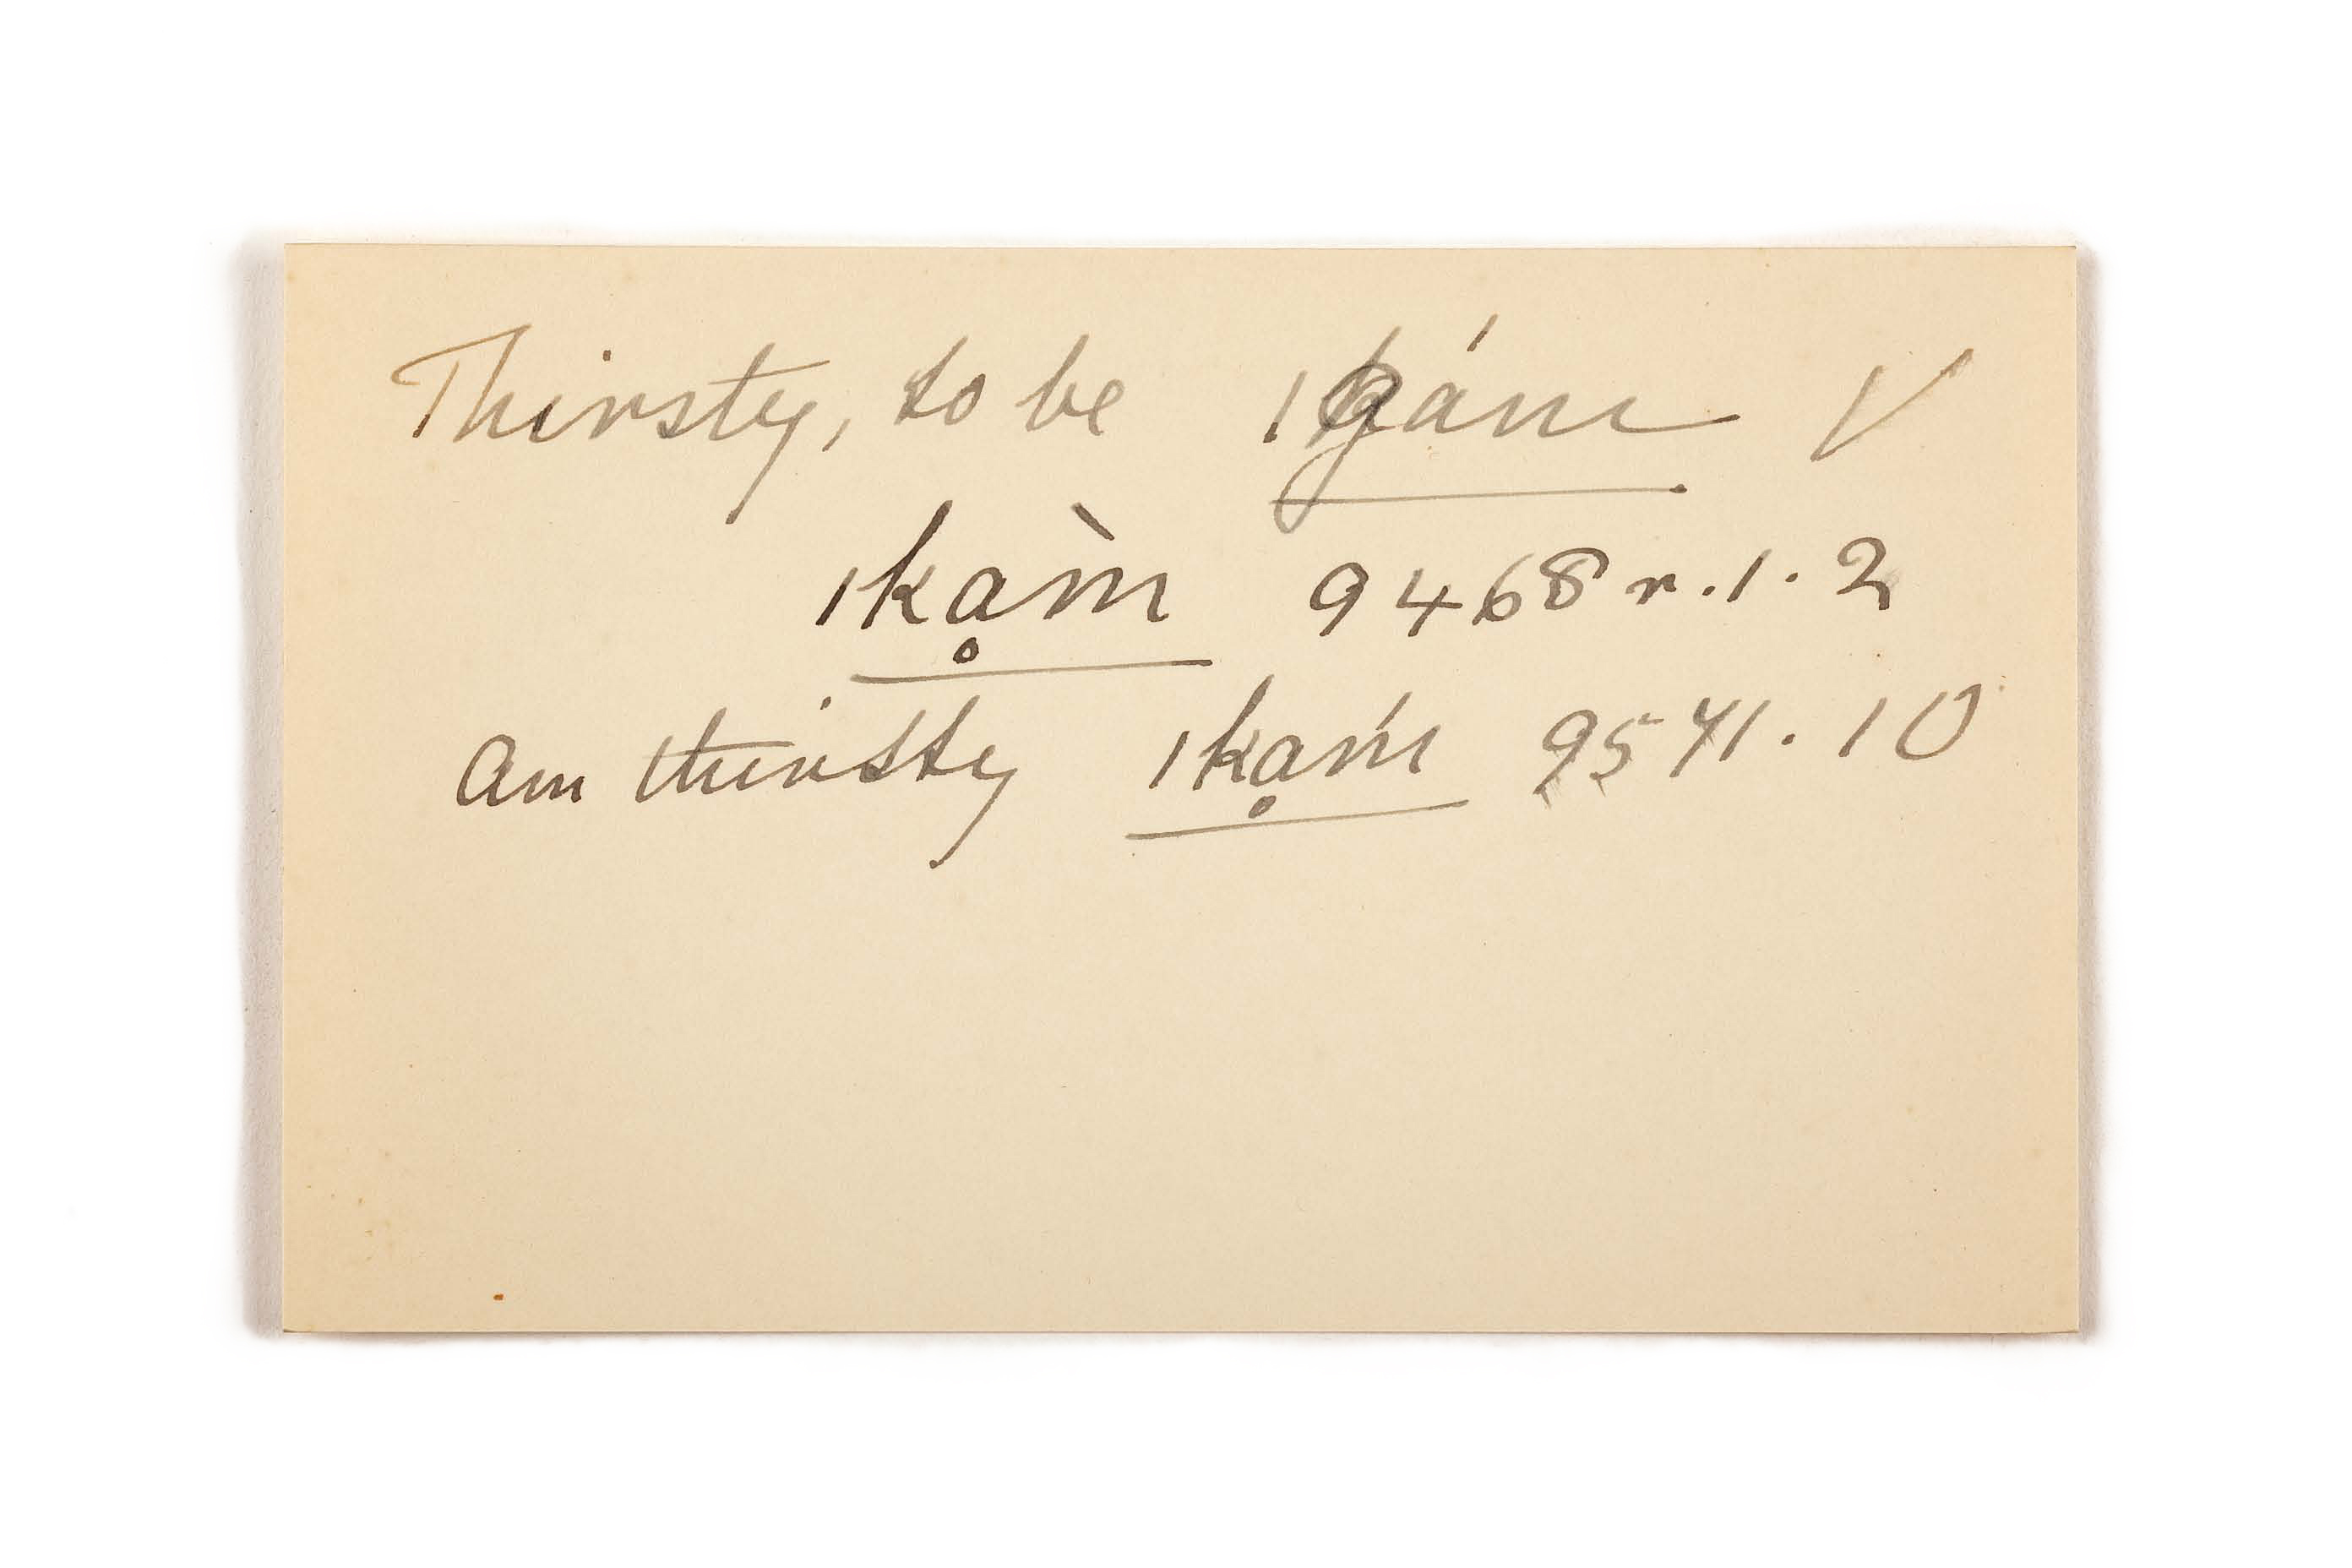 Thirsty, to be |gám V
|kạ̀m 9468 r. 1. 2
Am thirsty |kạḿ 9541. 10